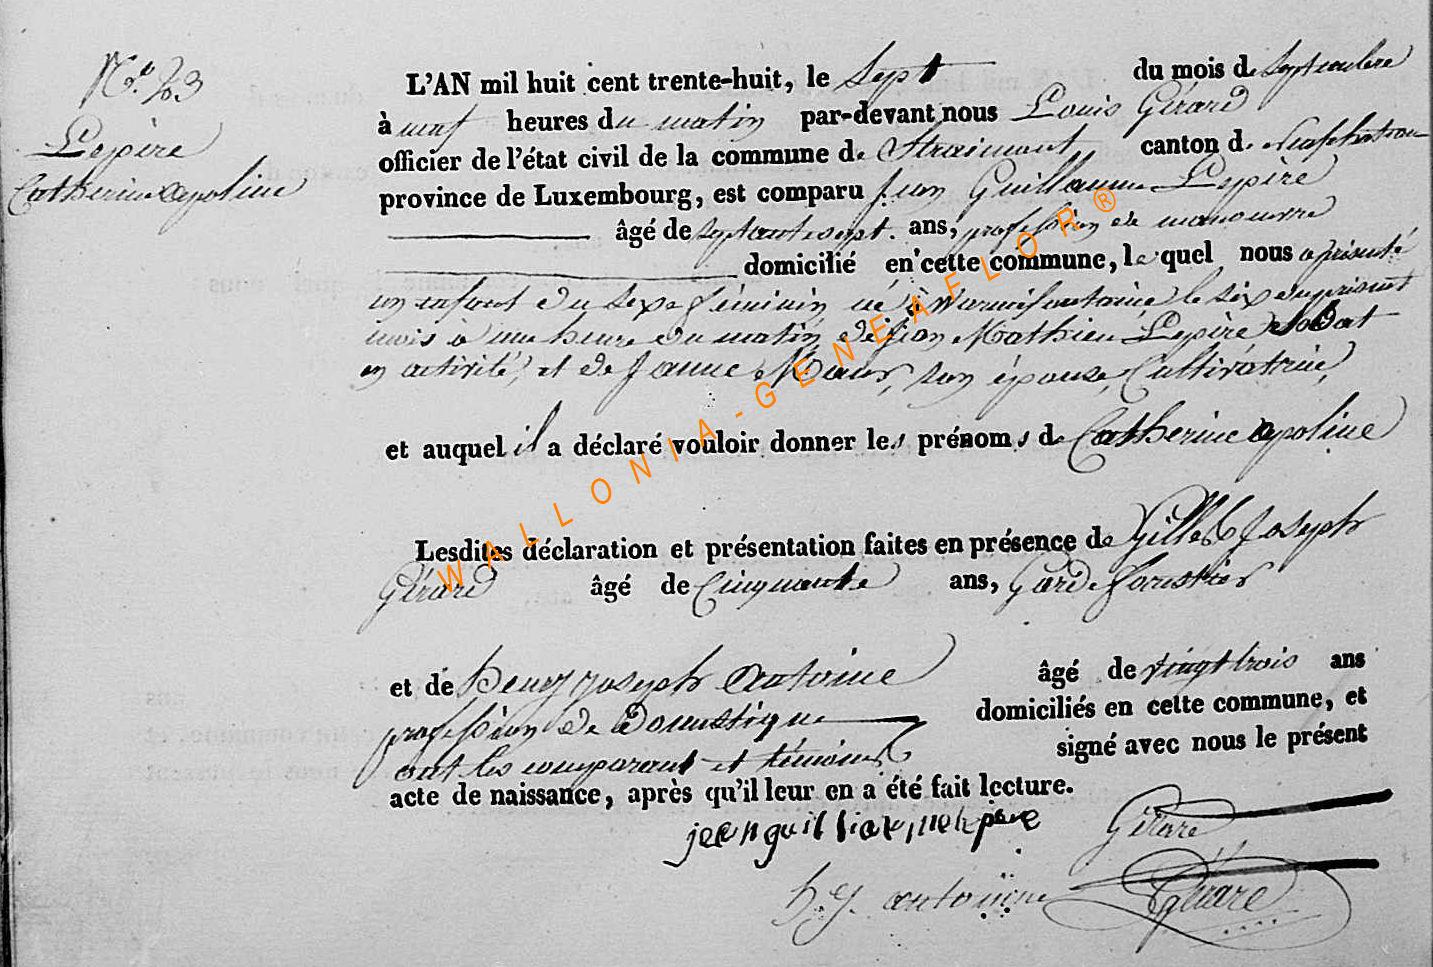 N° 23
Lepère
Catherine apoline
L'AN mil huit cent trente-huit, le sept du mois de septembre
à neuf heures du matin par-devant nous Louis Gérard
officier de l'état civil de la commune de Straimont canton de Neufchateau
province de Luxembourg, est comparu Jean Guillaume Lepère
âgé de septante sept ans, profession de manouvre
domicilié en cette commune, lequel nous a présenté
un enfant du sexe féminin né à le six du présent
mois à une heure du matin, de jean Mathieu Lepère soldat
en activité, et de Jeanne son épouse, Cultivatrice,
et auquel il a déclaré vouloir donner les prénoms de Catherine apoline
Lesdites déclaration et présentation faites en présence de Gille Joseph
Gérard âgé de Cinquante ans, Garde forestier
et de henry joseph antoine âgé de vingt trois ans
profession de domestique domiciliés en cette commune, et
ont les comparant et témoins signé avec nous le présent
acte de naissance, après qu'il leur en a été fait lecture.
jean guilliaume lepère Gérard
h. j. antoine Gérard
WALLONIA-GENEAFLOR®